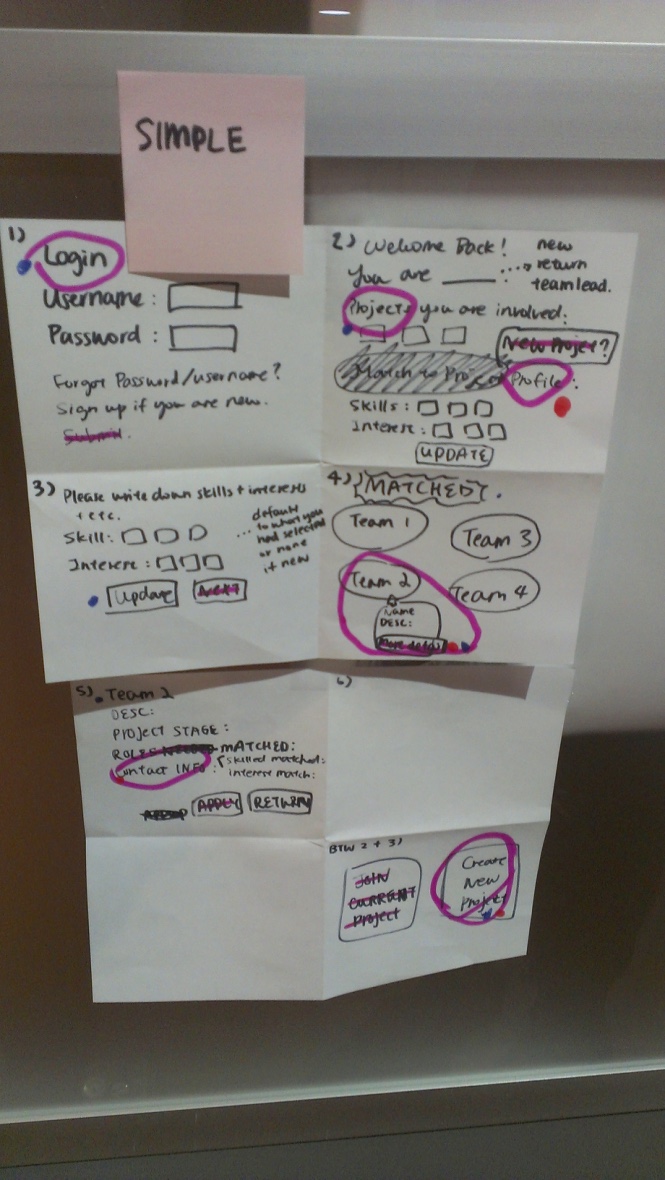 SIMPLE
1)
Login
Username :
Password :
Forgot Password/username?
Sign up if you are new.
Submit.
2) Welcome Back!
You are ____
new
return
team lead.
Projects you are involved:
New Project?
Match to Pro
Profile:
Skills:
Interest:
UPDATE
3) Please write down skills + interests
+ etc.
Skill:
Interest:
... default
to what you
had selected
or none
if new
Update
Next
4) MATCHED
Team 1
Team 3
Team 2
Team 4
Name
DESC:
More details
5) Team 2
DESC:
PROJECT STAGE :
ROLES NEEDED MATCHED:
Contact INFO :
skilled matched:
interest match:
APPLY
RETURN
6)
BTW 2 + 3)
JOIN
CURRENT
Project
Create
New
Project